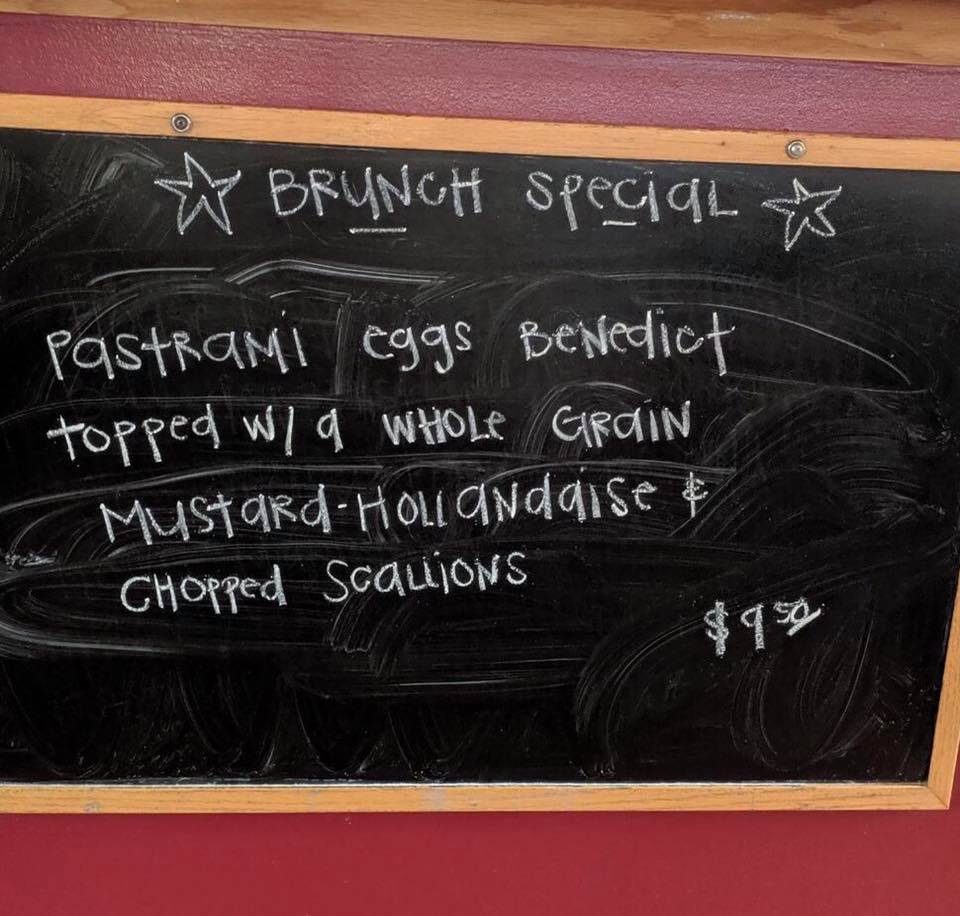 BRUNCH special
Pastrami eggs Benedict
topped w/ a WHOLE GRAIN
Mustard-Hollandaise &
CHopped Scallions
$9.50